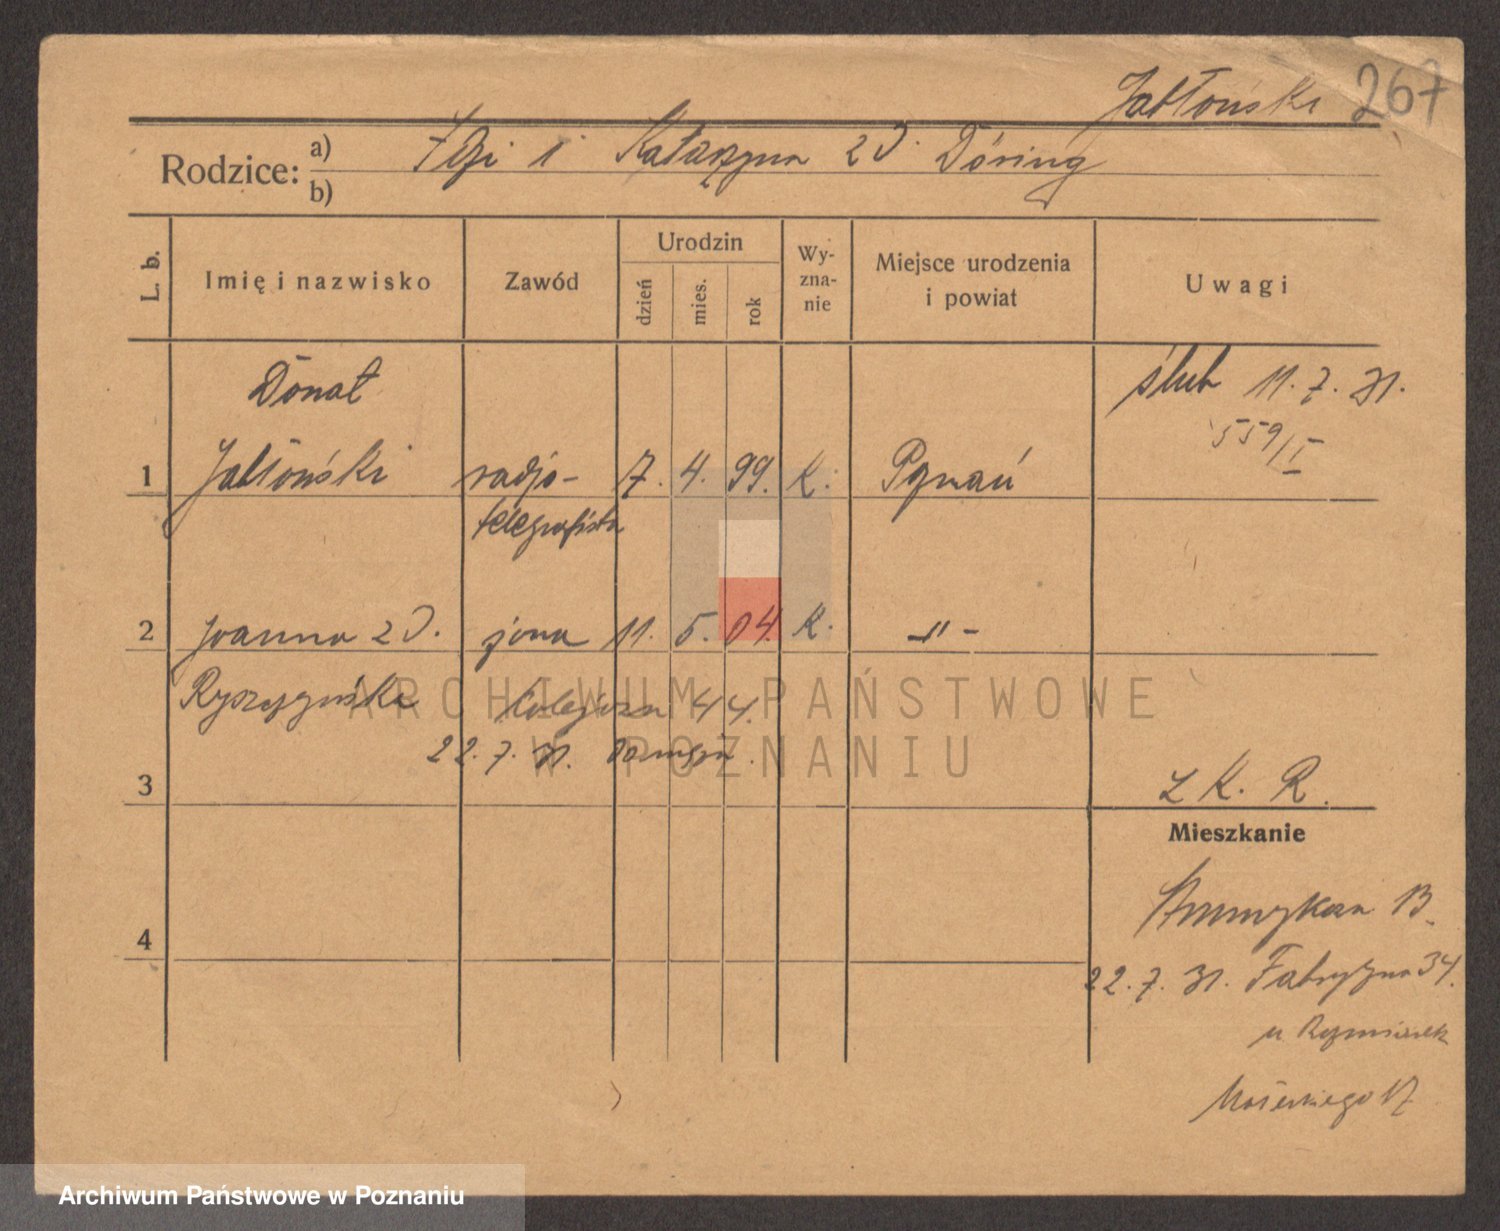 Jabłoński 267
Rodzice: a) i Katarzyna z D. Döring
b)
L. b.
Imię i nazwisko
Zawód
Urodzin
dzień
mies.
rok
Wy-
zna-
nie
Miejsce urodzenia
i powiat
Uwagi
Donat
ślub 11. 7. 31.
559/I
1 Jabłoński radjo- 7. 4. 99. K. Poznań
telegrafista
2 Joanna z D. żona 11. 5. 04. K. -"-
ARCHIWUM PAŃSTWOWE
W POZNANIU
22. 7. 31.
3
Z K. R.
Mieszkanie
13
4
22. 7. 31. Fabryczna 34.
u
17
Archiwum Państwowe w Poznaniu